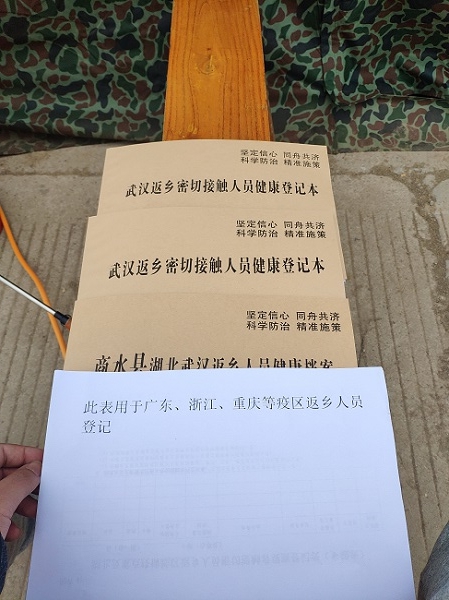 坚定信心 同舟共济
科学防治 精准施策
武汉返乡密切接触人员健康登记本
坚定信心 同舟共济
科学防治 精准施策
武汉返乡密切接触人员健康登记本
坚定信心 同舟共济
科学防治 精准施策
商水县湖北武汉返乡人员健康档案
此表用于广东、浙江、重庆等疫区返乡人员
登记